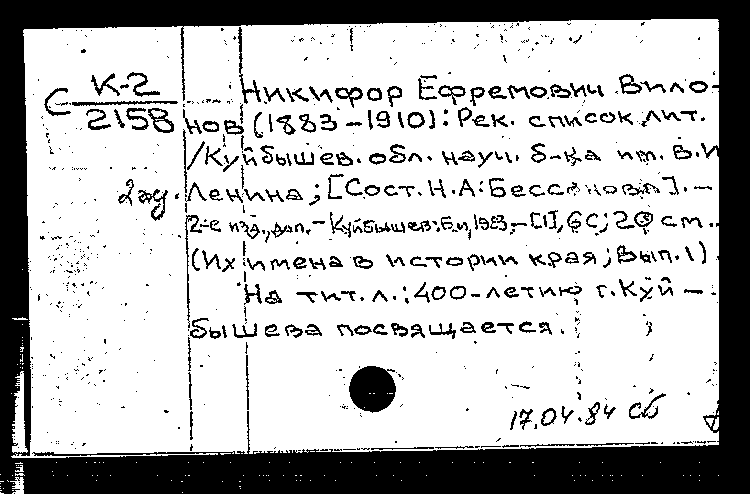 С К-2
2158
Никифор Ефремович Вило-
нов (1883-1910): Рек. список лит.
/Куйбышев. обл. науч. б-ка им. В.И
2 ад. Ленина; [Сост. Н.А. Бессонова]. -
2-е изд., доп. - Куйбышев: Б.и, 1983. - [1], 6 с; 20 см..
(Их имена в истории края; Вып. 1)
На тит. л.: 400-летию г. Куй-
бышева посвящается.
17.04.84 сб